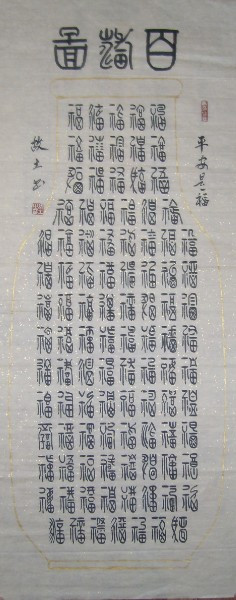 百福圖
平安是福
福福福福福
福福福福福
福福福福福
福福福福福福
福福福福福福福福
福福福福福福福福
福福福福福福福福
福福福福福福福福
福福福福福福福福
福福福福福福福福
福福福福福福福福
福福福福福福福福
福福福福福福福福
福福福福福福福